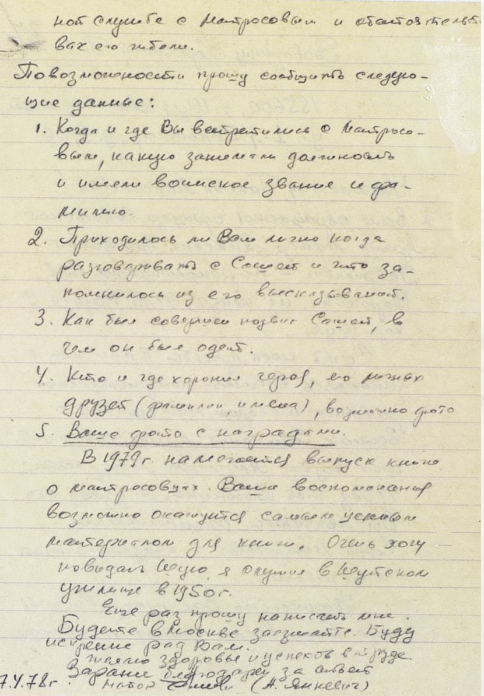 ной службе с Матросовым и обстоятельст-
вах его гибели.
По возможности прошу сообщить следую-
щие данные:
1. Когда и где Вы встретились с Матросо-
вым, какую занимали должность
и имели воинское звание и фа-
милию.
2. Приходилось ли Вам лично когда
разговаривать с Сашей и что за-
помнилось из его высказываний.
3. Как был совершен подвиг Сашей, в
чем он был одет.
4. Кто и где хоронил героя, его личных
друзей (фамилии имена), возможно фото
5. Ваше фото с наградами.
В 1979г. намечается выпуск книги
о матросовцах. Ваши воспоминания
возможно окажутся самым ценным
материалом для книги. Очень хочу
повидать Шую, я служил в Шуйском
училище в 1950г.
Еще раз прошу написать мне.
Будете в Москве заезжайте. Буду
искренне рад Вам.
Желаю здоровья и успехов в труде.
Заранее благодарен за ответ
7.4.78г. майор (А. Янкевич)